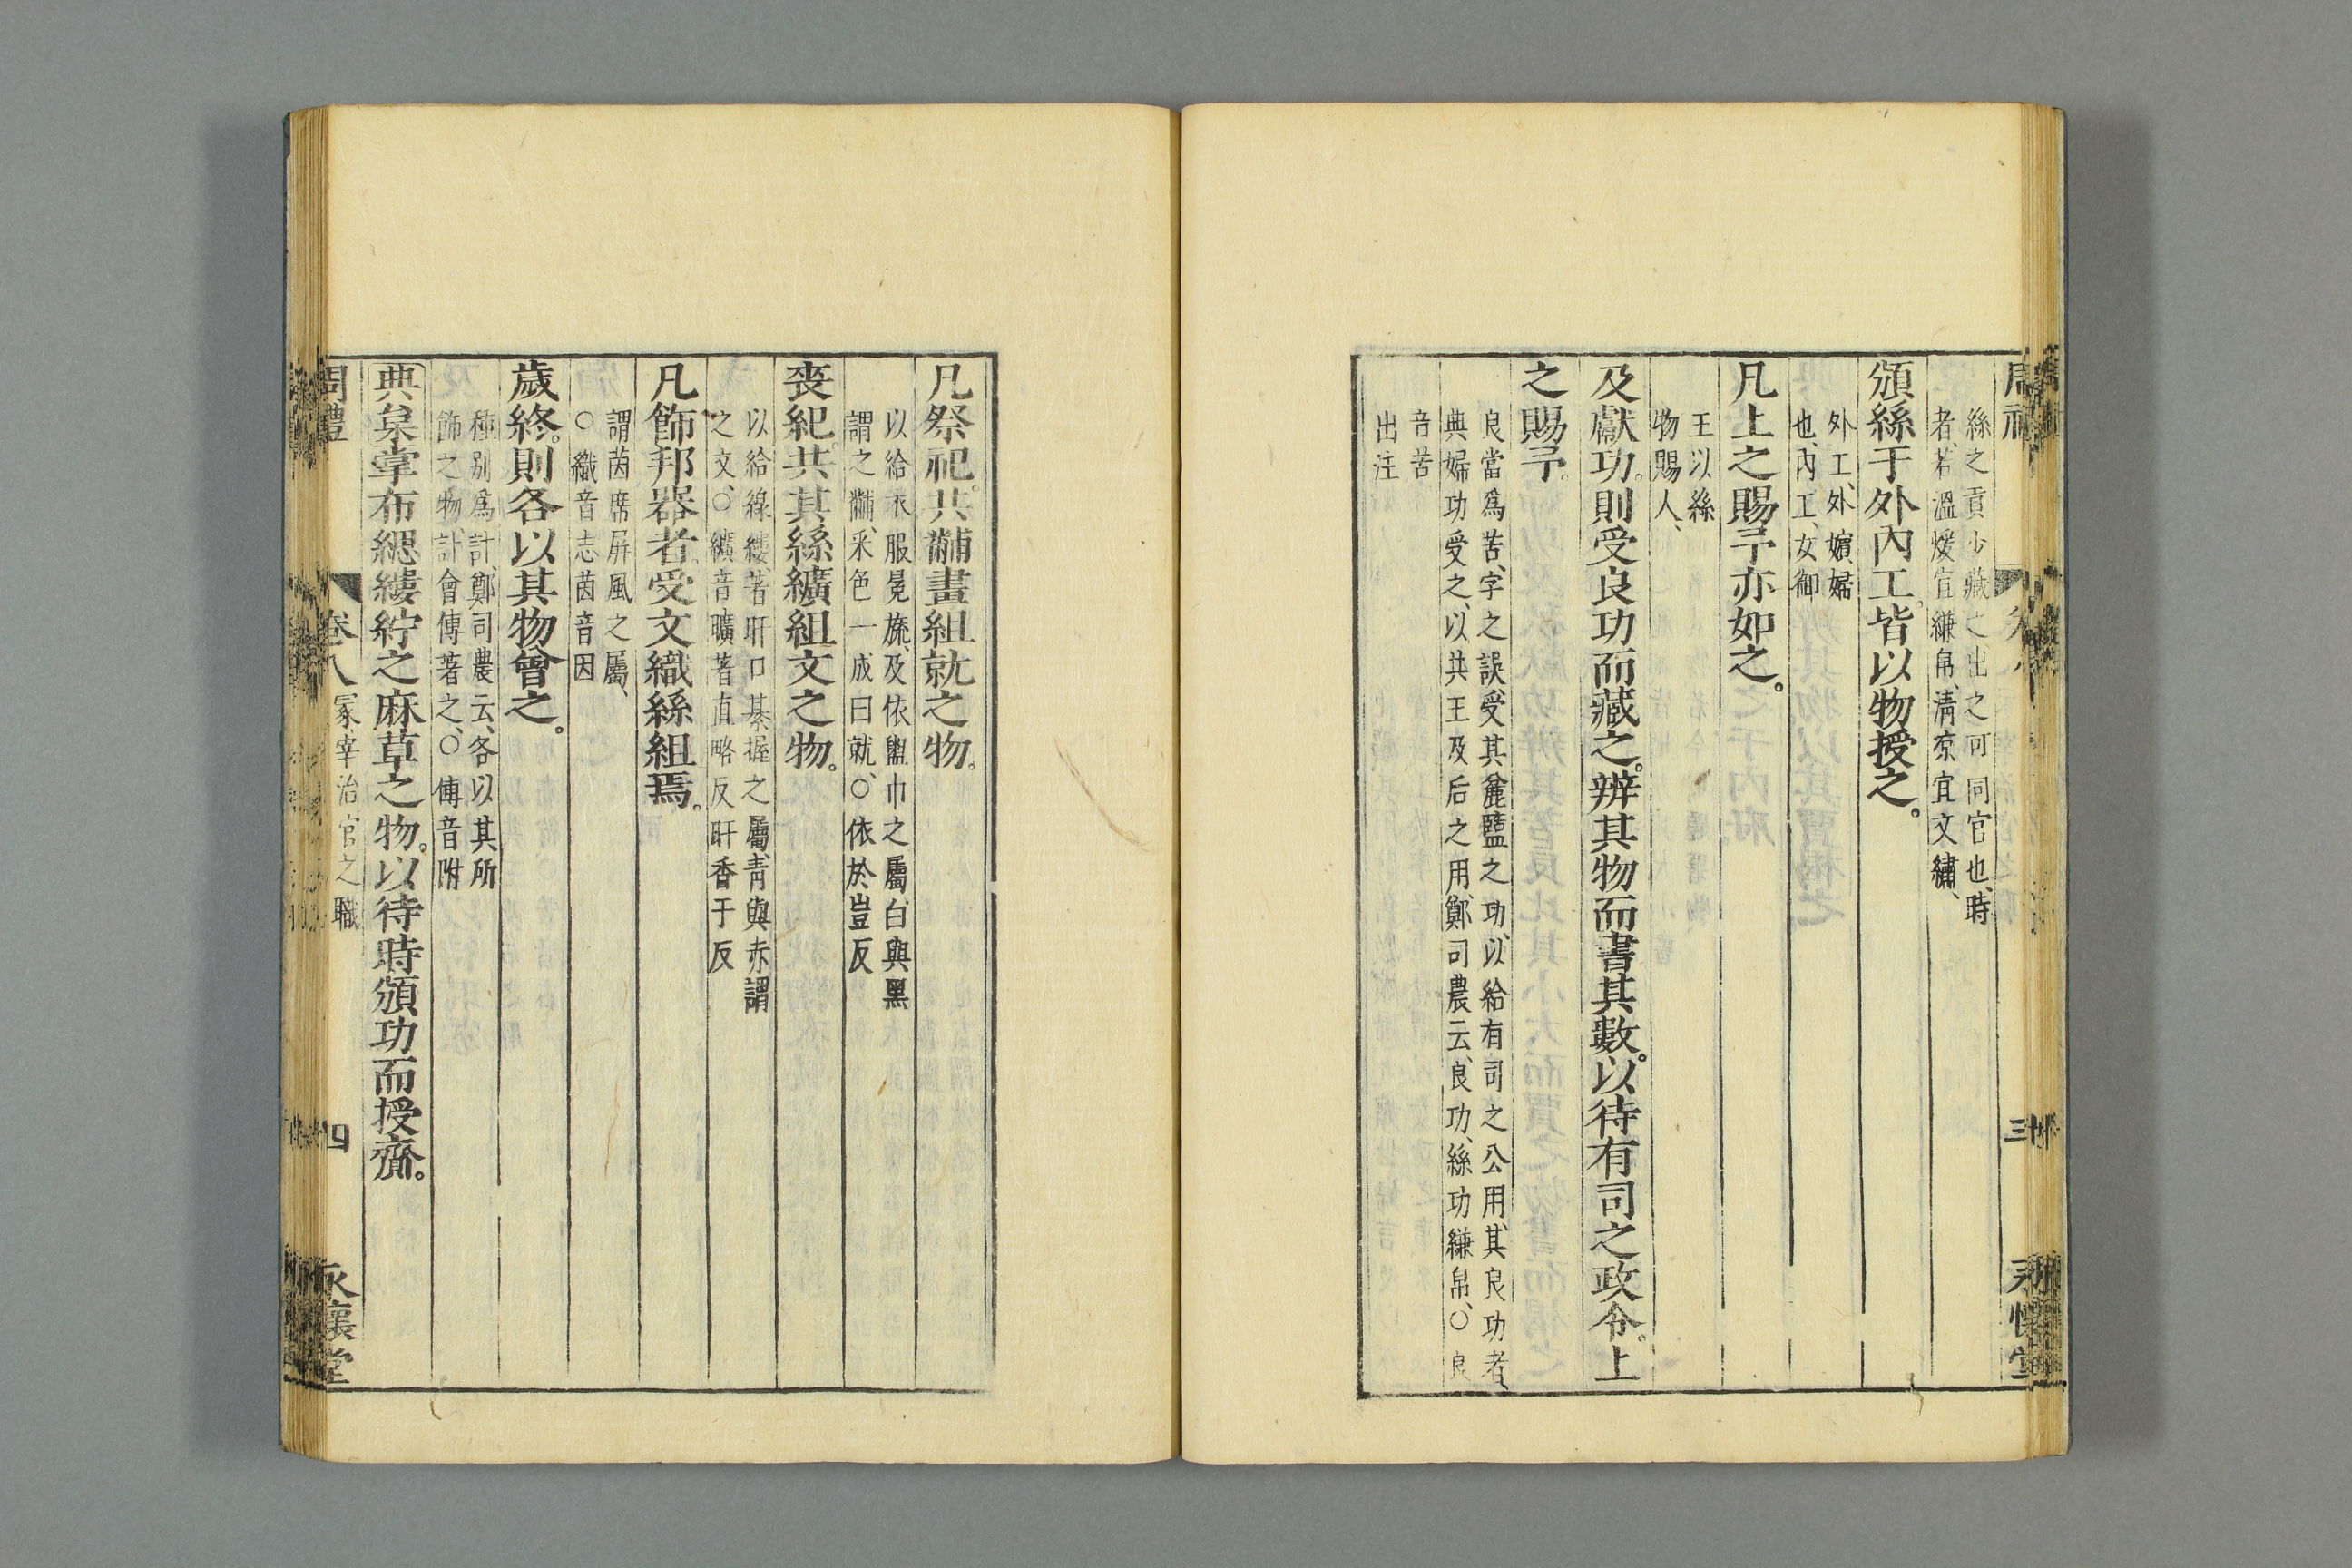 絲之貢少藏之出之可同官也、時
者、若溫煖宜縑帛、淸凉宜文繡、
頒絲于外內工。皆以物授之。
外工、外嬪婦
也、內工、女御
凡上之賜予亦如之。
王以絲
物賜人、
及獻功。則受良功而藏之。辨其物而書其數。以待有司之政令。上
之賜予。
良當爲苦、字之誤、受其麄盬之功、以給有司之公用、其良功者、
典婦功受之、以共王及后之用、鄭司農云、良功、絲功縑帛、〇良
音苦
出注
凡祭祀。共黼畫組就之物。
以給衣服冕旒、及依盥巾之屬、白與黑
謂之黼、采色一成曰就、〇依於豈反
喪紀。共其絲纊組文之物。
以給線縷、著盱口綦握之屬、靑與赤謂
之文、〇纊音曠著直略反盱香于反
凡飾邦器者。受文織絲組焉。
謂茵席屛風之屬、
〇織音志茵音因
歲終。則各以其物會之。
種別爲計、鄭司農云、各以其所
飾之物、計會傅著之、〇傅音附
典枲掌布緦縷紵之麻草之物。以待時頒功而授齎。
周禮 卷八 冢宰治官之職 四 永懷堂